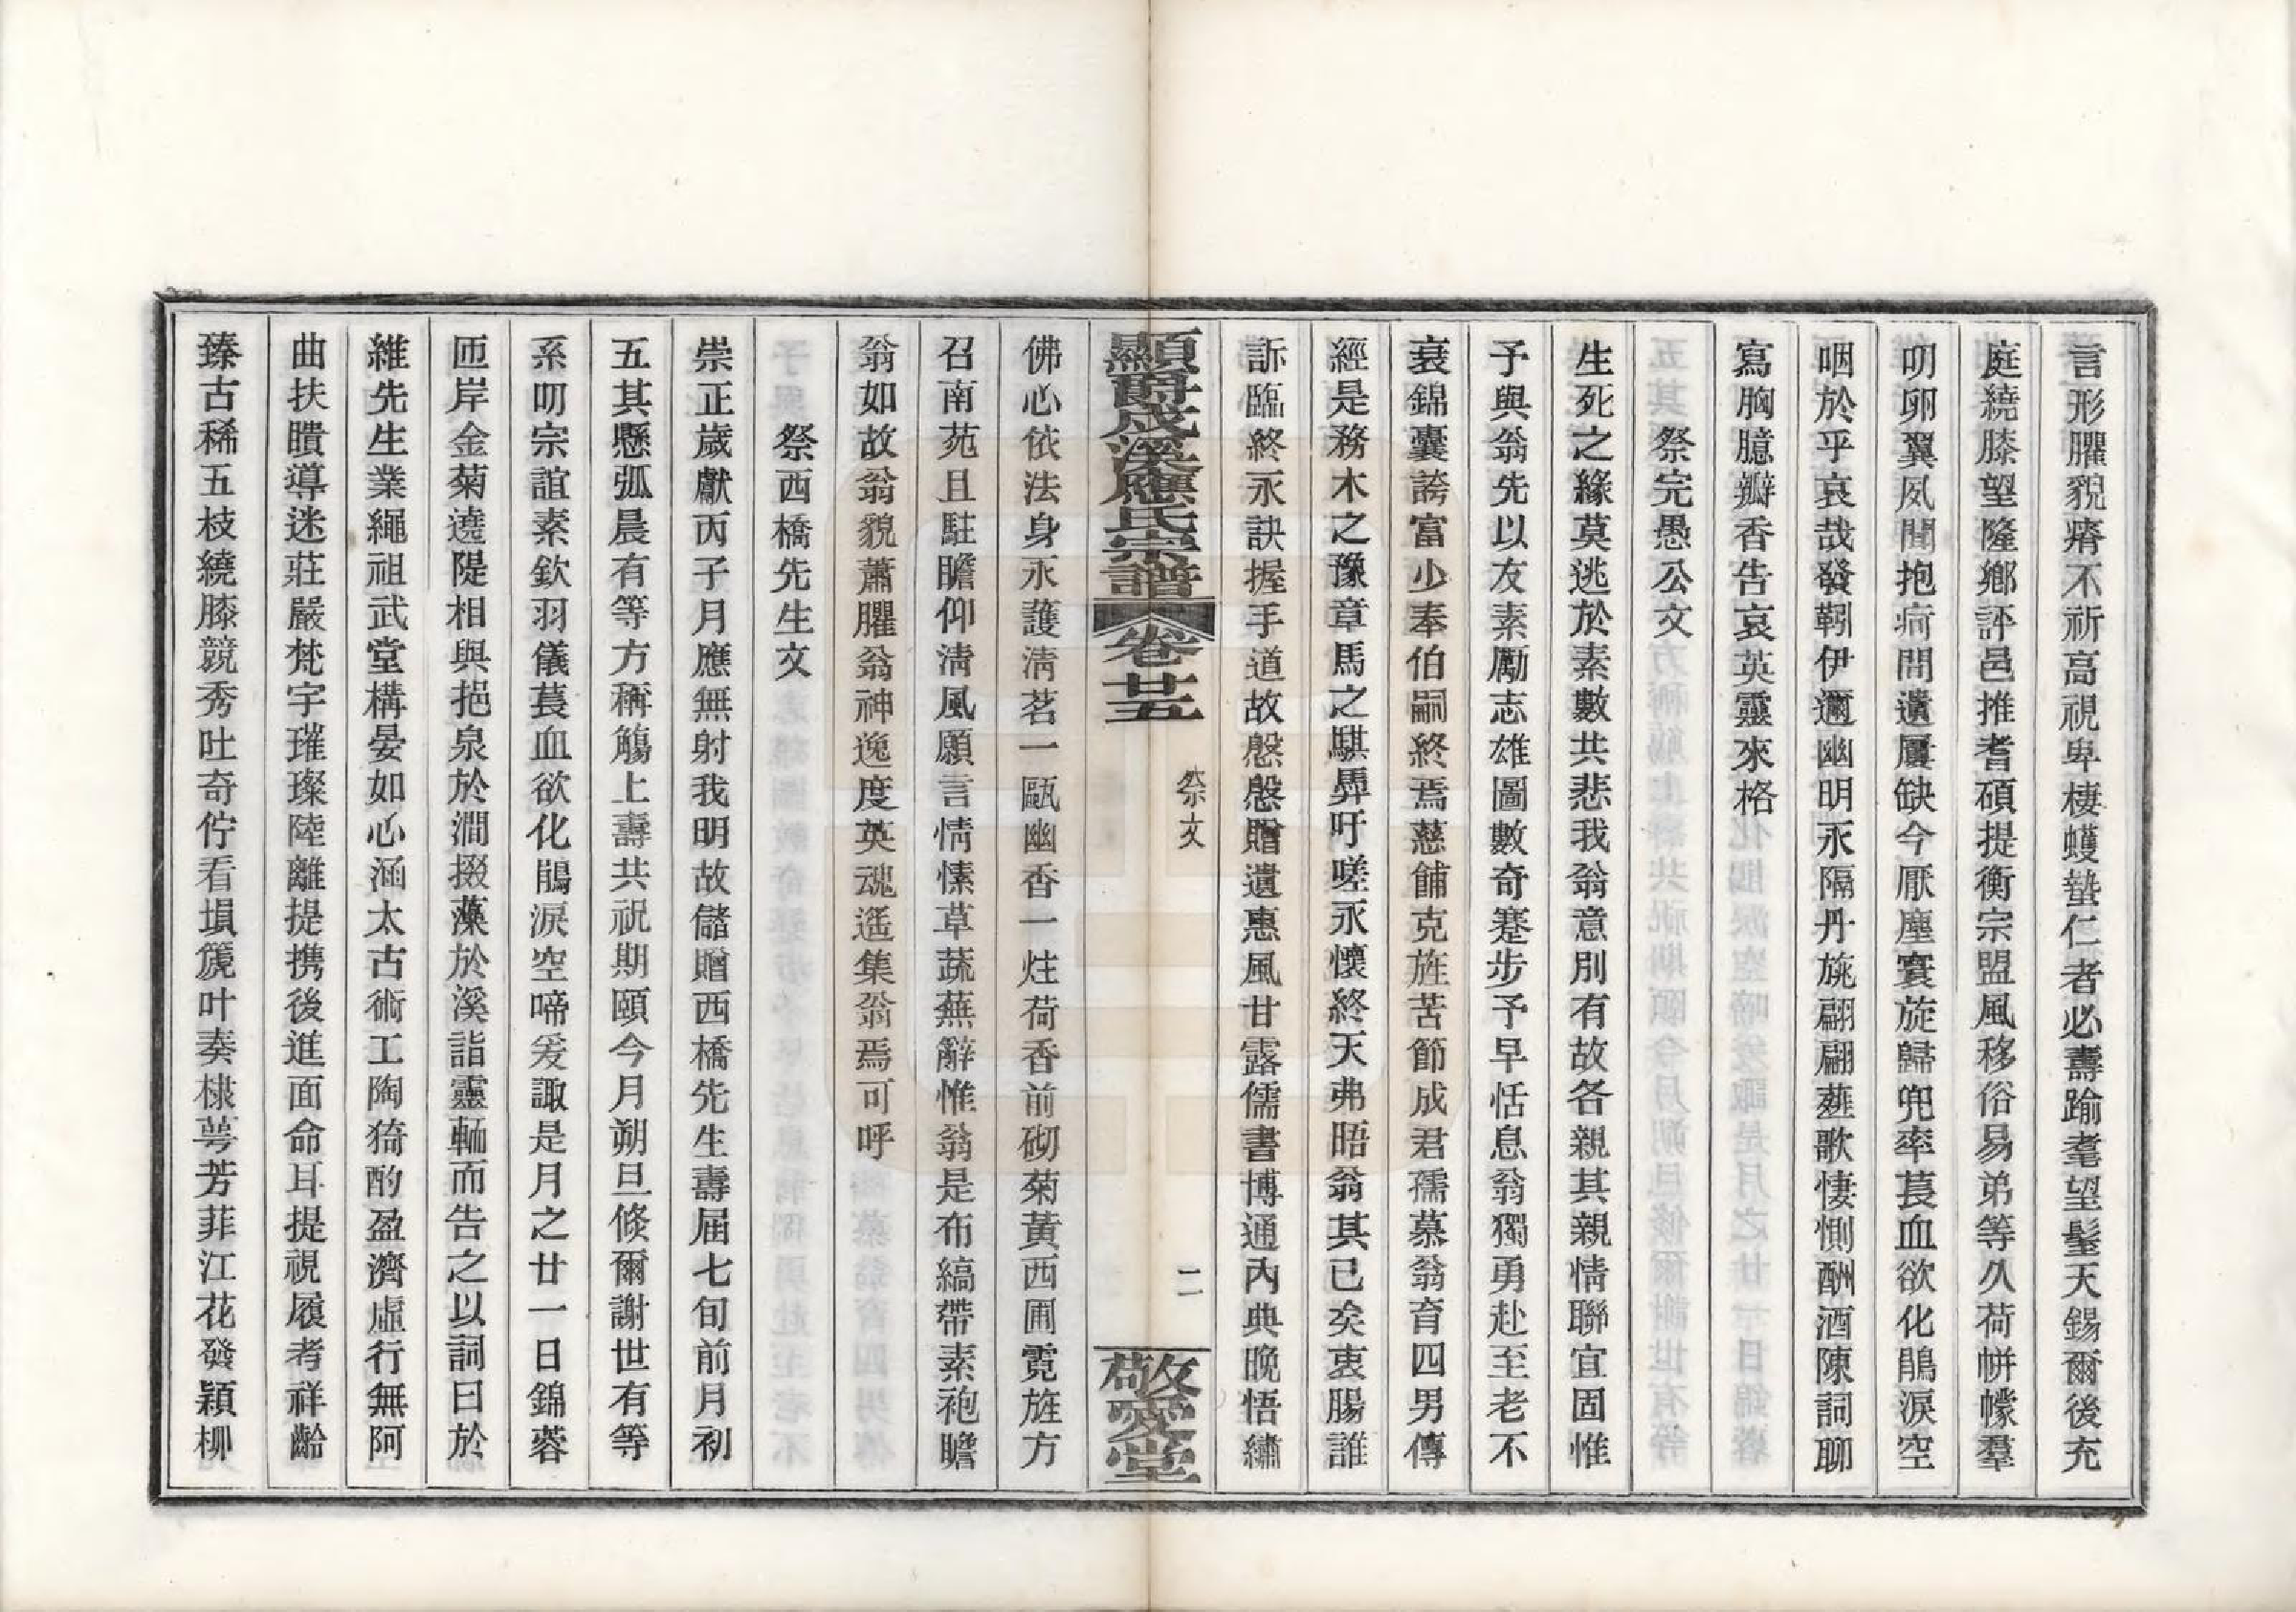 言形臞貌瘠不祈高視卑棲蠖蟄仁者必壽踰耄望髦天錫爾後充
庭繞膝望隆鄉評邑推耆碩提衡宗盟風移俗易弟等久荷帡幪羣
叨卵翼夙聞抱疴問遺屢缺今厭塵寰旋歸兜率萇血欲化鵑淚空
咽於乎哀哉發靷伊邇幽明永隔丹旐翩翩薤歌悽惻酬酒陳詞聊
寫胸臆瓣香告哀英靈來格
祭完愚公文
生死之緣莫逃於素數共悲我翁意別有故各親其親情聯宜固惟
予與翁先以友素勵志雄圖數奇蹇步予早恬息翁獨勇赴至老不
衰錦囊誇富少奉伯嗣終焉慈餔克旌苦節成君孺慕翁育四男傳
經是務木之豫章馬之騏驥吁嗟永懷終天弗晤翁其已矣衷腸誰
訴臨終永訣握手道故慇慇贈遺惠風甘露儒書博通內典晚悟繡
顯爵成溪應氏宗譜 卷廿五 祭文 二 敬愛堂
佛心依法身永護淸茗一甌幽香一炷荷香前砌菊黃西圃霓旌方
召南苑且駐瞻仰淸風願言情愫草蔬蕪辭惟翁是布縞帶素袍瞻
翁如故翁貌蕭臞翁神逸度英魂遙集翁焉可呼
祭西橋先生文
崇正歲獻丙子月應無射我明故儲贈西橋先生壽屆七旬前月初
五其懸弧晨有等方稱觴上壽共祝期頤今月朔旦倏爾謝世有等
系叨宗誼素欽羽儀萇血欲化鵑淚空啼爰諏是月之廿一日錦蓉
匝岸金菊遶隄相與挹泉於澗掇藻於溪詣靈輀而告之以詞曰於
維先生業繩祖武堂構晏如心涵太古術工陶猗酌盈濟虛行無阿
曲扶瞶導迷莊嚴梵宇璀璨陸離提携後進面命耳提視履考祥齡
臻古稀五枝繞膝競秀吐奇佇看塤篪叶奏棣萼芳菲江花發穎柳